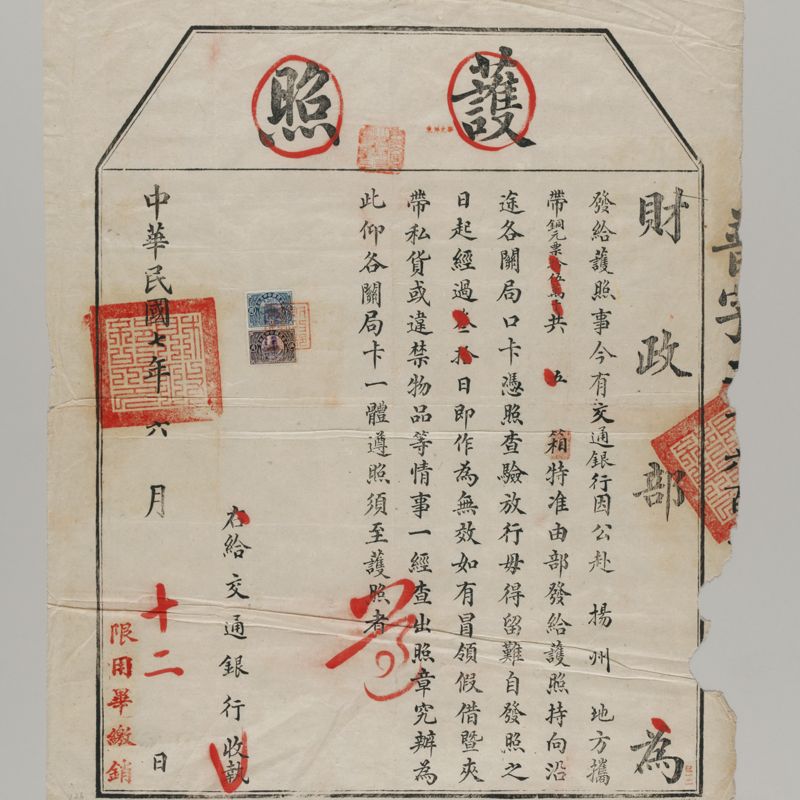 護照
財政部為
發給護照事今有交通銀行因公赴 揚州 地方攜
帶銅元票拾伍萬 共 五 箱特准由部發給護照持向沿
途各關局口卡憑照查驗放行毋得留難自發照之
日起經過 拾日即作為無效如有冒領假借暨夾
帶私貨或違禁物品等情事一經查出照章究辦為
此仰各關局卡一體遵照須至護照者
右給交通銀行收執
中華民國七年六月十二日
限用畢繳銷